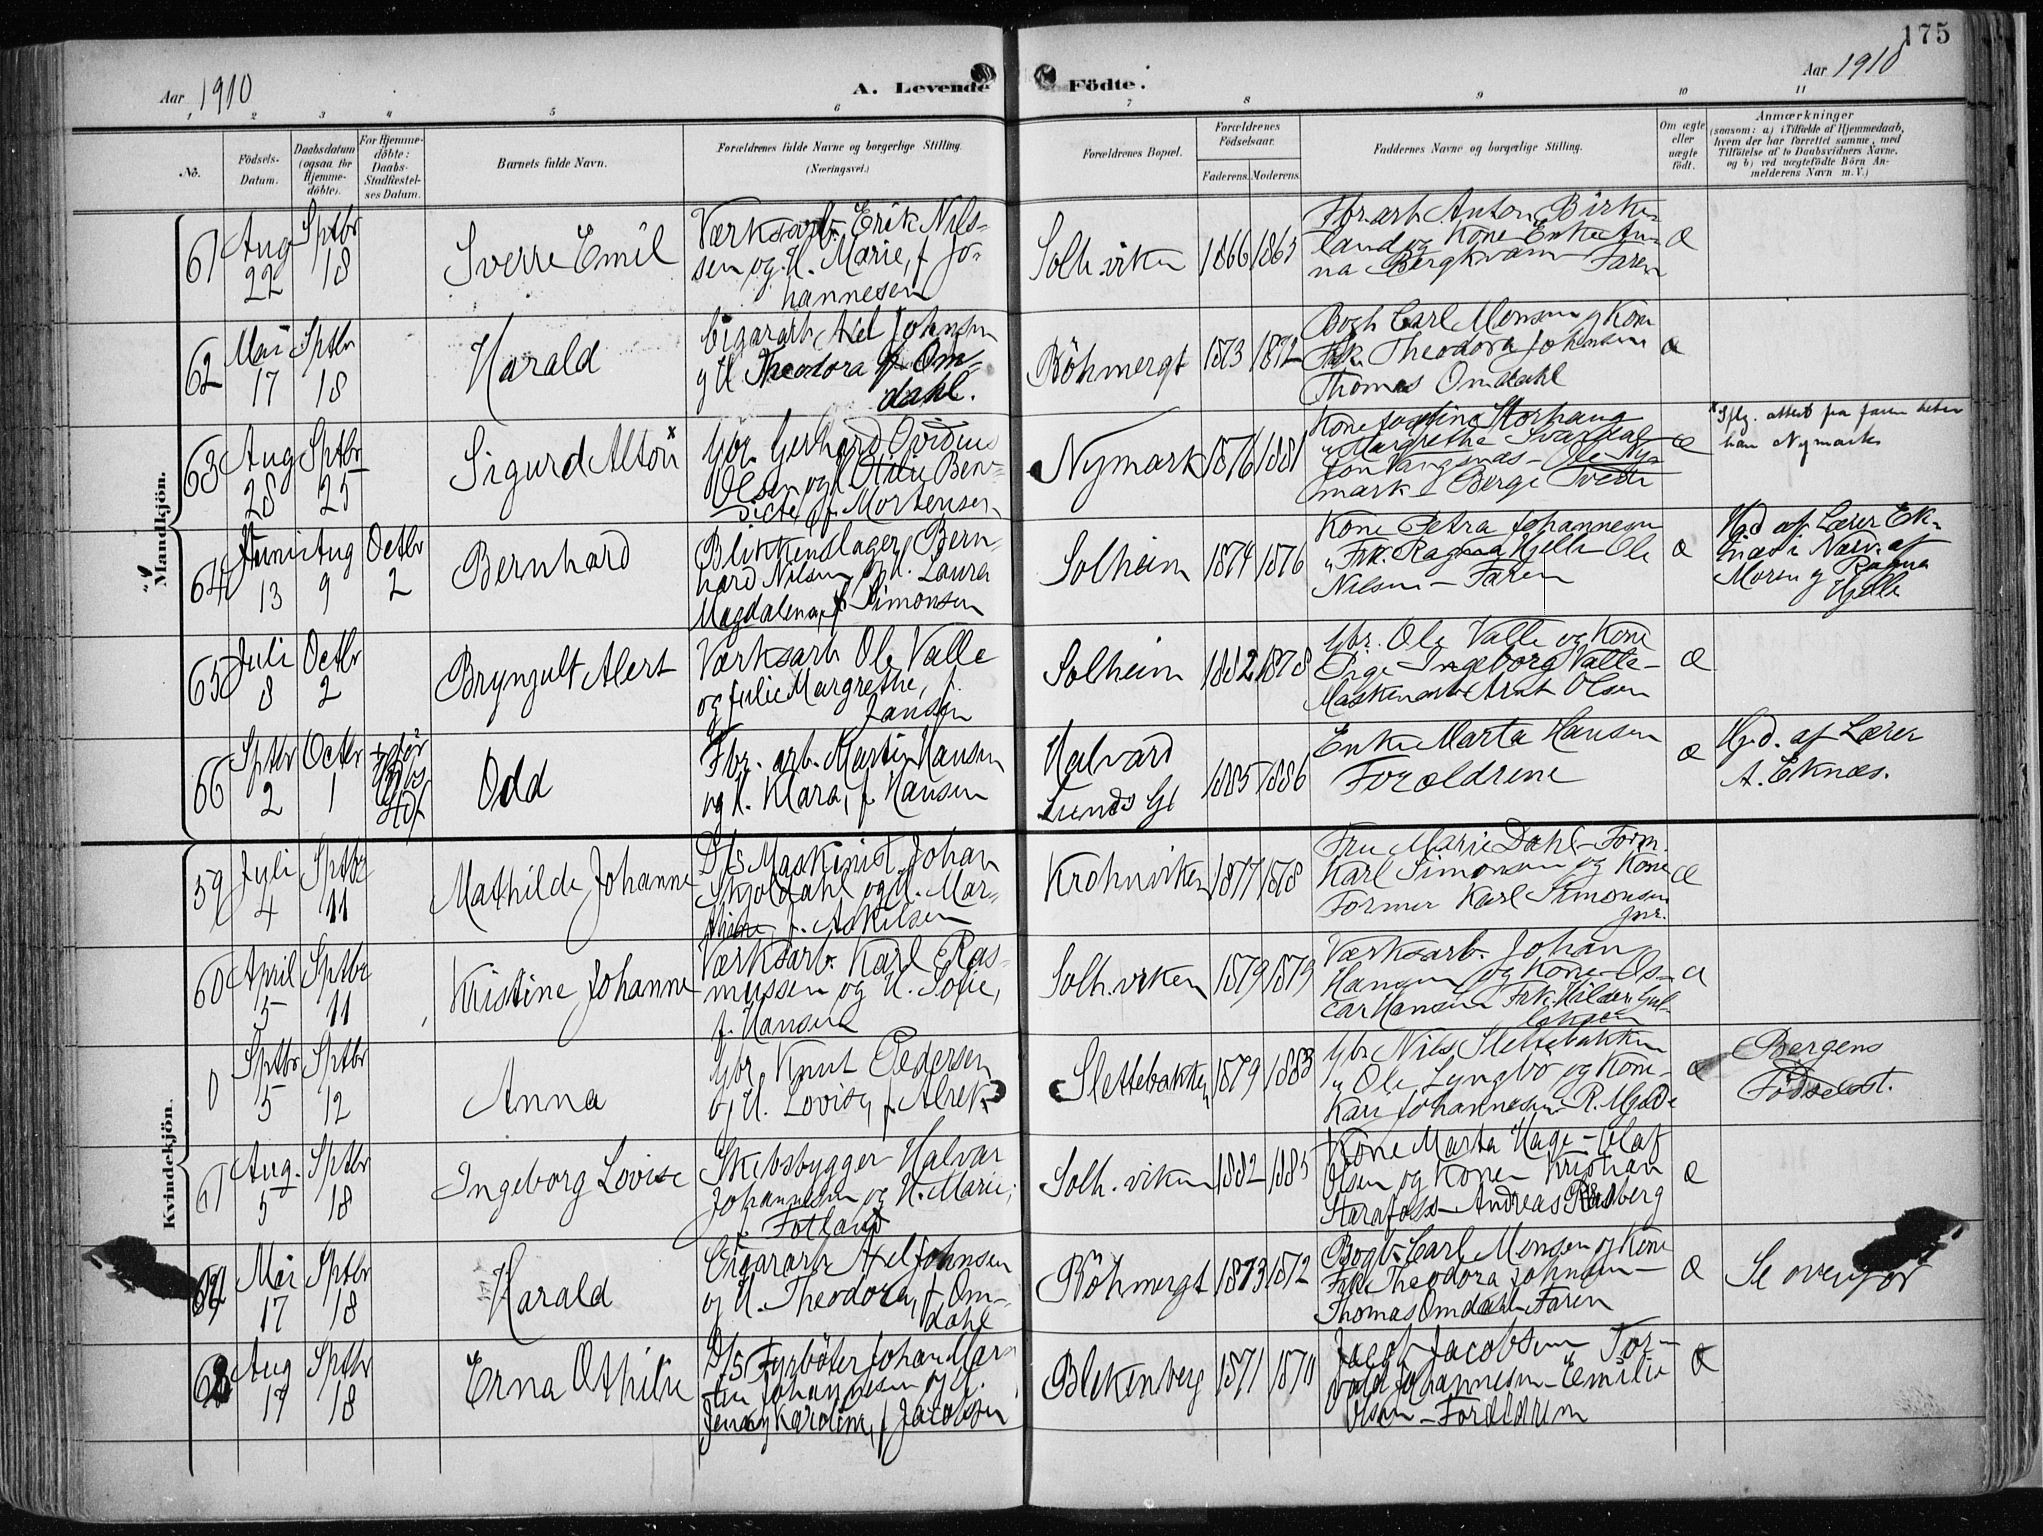 175
Aar 1910
A. Levende Födte.
Aar 1910
1 2 3 4 5 6 7 8 9 10 11
No.
Födsels-Datum.
Daabsdatum (ogsaa for Hjemme-döbte).
For Hjemme-döbte: Daabs-Stadfæstel-ses Datum.
Barnets fulde Navn.
Forældrenes fulde Navne og borgerlige Stilling.
(Næringsvei.)
Forældrenes Bopæl.
Forældrenes Födselsaar.
Faderens. Moderens.
Faddernes Navne og borgerlige Stilling.
Om ægte eller uægte födt.
Anmærkninger
(saasom: a) i Tilfælde af Hjemmedaab,
hvem der har forrettet samme, med
Tilföielse af to Daabsvidners Navne,
og b) ved uægtefödte Börn An-
melderens Navn m. V.)
Mandkjön.
61 Aug 22 Sptbr 18 Sverre Emil
Værksarb. Erik Nils-
sen og H. Marie, f Jo-
hannesen
Solh.viken 1866 1863
Fbr.arb. Anton Birke-
land og Kone Enke An-
na Bergkvam Faren
æ
62 Mai 17 Sptbr 18 Harald
Cigararb Axel Johnsen
og H Theodora f. Om-
dahl.
Böhmergt 1873 1872
Bogh Carl Monsen og Kone
Frk. Theodora Johnsen
Thomas Omdahl
æ
63 Aug 28 Sptbr 25 Sigurd Alton x
Gbr. Gerhard Ovidius
Olsen og H Otilie Ben-
dicte, f. Mortensen
Nymark 1876 1881
Kone Storhaug
" Margrethe
Jon Vangsnæs - Ole Ny-
mark - Berge Tvedt
æ
x Iflg. attest fra faren heter
han Nymark
64 Juni 13 Aug 9 Octbr 2 Bernhard
Blikkenslager Bern-
hard Nilsen og H. Laura
Magdalena, f Simonsen
Solheim 1874 1876
Kone Petra Johannesen
" Frk. Ragna Hjelle Ole
Nilsen - Faren
æ
Hjd af Lærer Ek-
næs i Nærv. af
Moren og Ragna
Hjelle
65 Juli 8 Octbr 2 Bryngult Alert
Værksarb Ole Valle
og Julie Margrethe, f.
Jansen
Solheim 1882 1878
Gbr. Ole Valle og Kone
Pige Ingeborg Valle -
Maskinarb Arnt Olsen
æ
66 Sptbr 2 Octbr 1 Odd
Fbr. arb. Martin Hansen
og H. Klara, f Hansen
Halvard
Lunds Gt 1885 1886
Enke Marta Hansen
Forældrene
æ
Hjd. af Lærer
A. Eknæs.
Kvindekjön.
59 Juli 4 Sptbr 11 Mathilde Johanne
D/s Maskinist Johan
Skjoldahl og H. Mar-
thine, f. Askilsen
Krohnviken 1877 1878
Fru Marie Dahl - Form.
Karl Simonsen og Kone
Former Karl Simonsen
jnr.
æ
60 April 5 Sptbr 11 Kristine Johanne
Værksarb. Karl Ras-
mussen og H. Sofie,
f. Hansen
Solh.viken 1879 1879
Værksarb. Johan
Hansen og Kone - Os-
car Hansen Frk. Hilda Gul-
æ
0 Sptbr 5 Sptbr 12 Anna
Gbr. Knut Pedersen
og H. Lovise, f. Alrek
Slettebakken 1879 1883
Gbr Nils Slettebakken
" Ole Lyngbö og Kone -
Kari Johannesen R. Mjelde
æ
Bergens
Födselsst.
61 Aug. 5 Sptbr 18 Ingeborg Lovise
Skibsbygger Halvar
Johannesen og H. Marie,
f. Fotland
Solh.viken 1882 1885
Kone Marta Hage - Olaf
Olsen og Kone Kristian
Storafoss - Andreas Rödberg
æ
62 Mai 17 Sptbr 18 Harald
Cigararb Axel Johnsen
og H. Theodora, f. Om-
dahl
Böhmergt 1873 1872
Bogh. Carl Monsen og Kone
Frk. Theodora Johnsen -
Thomas Omdahl Faren
æ
Se ovenfor
62 Aug 17 Sptbr 18 Erna Othilie
D/S Fyrböter Johan Mar-
tin Johannesen og H.
Jenny Karoline, f Jacobsen
Blekenberg 1871 1870
Jacob Jacobsen Tor-
vald Johannesen - Emilie
Olsen - Forældrene
æ